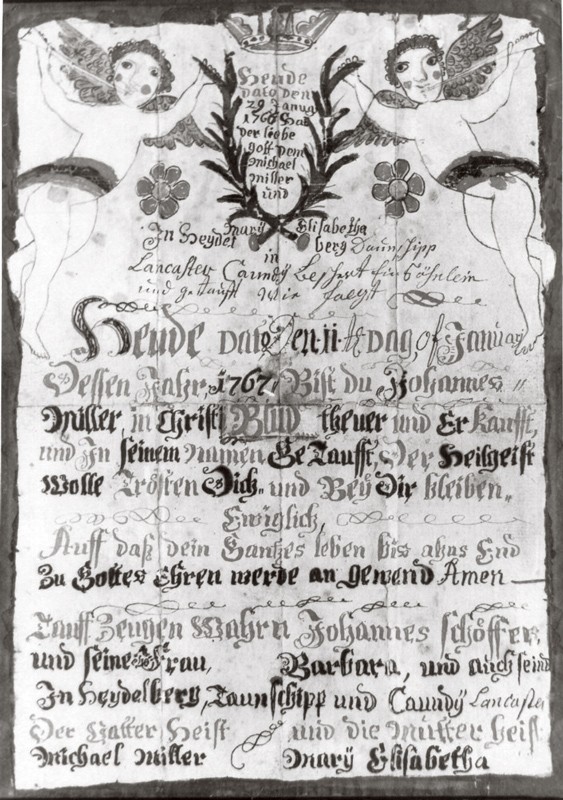 Heude
dato den
29 Janua
1766 Hat
der liebe
gott dem
Michael
Miller
und
Mary Elisabetha
In Heydel berg Daunschipp
in
Lancaster Caundy Beschert ein Söhnlein
und getaufft Wie folgt
Heude dato Den 11 th dag, of January
Dessen Jahr, 1767, Bist du Johannes
Miller, in Christi Blud theuer und Er Kaufft,
und In seinem Namen Ge Taufft, Der Heilgeist
Wolle Trösten Dich, und Bey Dir bleiben,
Ewiglich,
Auff daß dein Gantzes leben bis ahns End
Zu Gottes Ehren werde an gewend Amen
Tauff Zeugen Wahrn Johannes schöffer,
und seine Frau, Barbara, und auch seind
In Heydelberg, Taunschipp und Caundy Lancaster
Der Vatter Heist und die Mutter heist
Michael Miller Mary Elisabetha